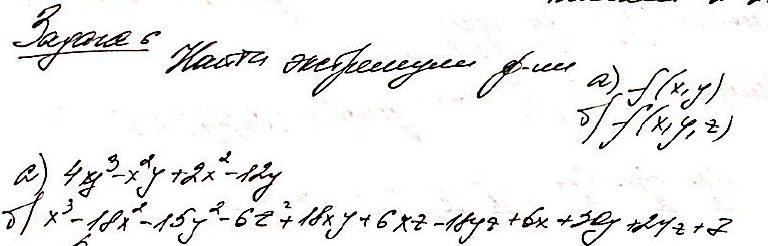 Задача 6
Найти экстремумы ф-ии
а) f(x,y)
б) f(x,y,z)
а) 4xy³-x²y+2x²-12y
б) x³-18x²-15y²-6z²+18xy+6xz-18yz+6x+30y+24z+7